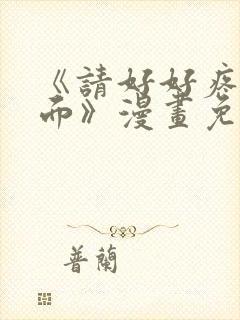 《請好好疼
而》漫畫免
普蘭